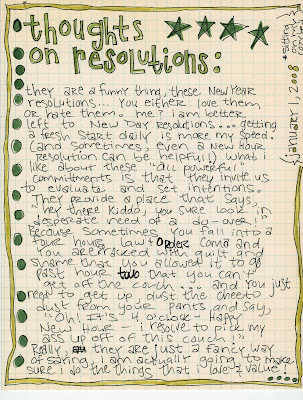 thoughts
on resolutions:
they are a funny thing, these New Year
resolutions... You either love them
or hate them. me? i am better
left to New Day resolutions... getting
a fresh start daily is more my speed.
(and sometimes, even a New Hour
resolution can be helpful!) what i
like about these "all powerful"
commitments is that they invite us
to evaluate and set intentions.
They provide a place that says,
"hey there kiddo, you sure look in
desperate need of a do-over!"
Because sometimes you fall into a
four hours law & ORDER coma and
you are racked with guilt and
shame that you allowed it to go
past hour two that you can't
get off the couch... and you just
need to get up, dust the cheeto
dust from your pants and say,
"Oh! It's 4 o'clock - Happy
New Hour - i resolve to pick my
ass up off of this couch!!"
Really they are just a fancy way
of saying, i am actually going to make
sure i do the things that i love & value!
{january 1, 2008}